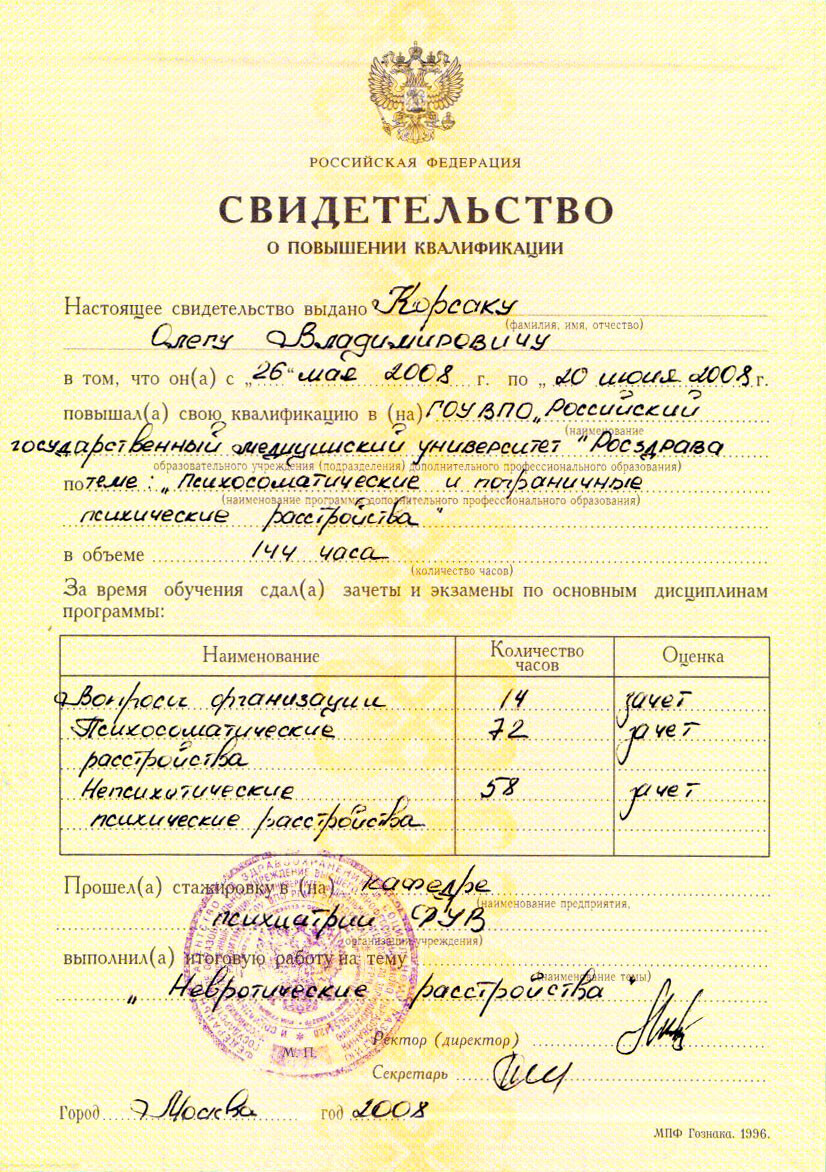 РОССИЙСКАЯ ФЕДЕРАЦИЯ
СВИДЕТЕЛЬСТВО
О ПОВЫШЕНИИ КВАЛИФИКАЦИИ
Настоящее свидетельство выдано Корсаку
(фамилия, имя, отчество)
Олегу Владимировичу
в том, что он(а) с „26“ мая 2008 г. по „20 июня 2008 г.
повышал(а) свою квалификацию в (на) ГОУ ВПО „Российский
(наименование
государственный медицинский университет" Росздрава
образовательного учреждения (подразделения) дополнительного профессионального образования)
по теме: „Психосоматические и пограничные
(наименование программы дополнительного профессионального образования)
психические расстройства"
в объеме 144 часа
(количество часов)
За время обучения сдал(а) зачеты и экзамены по основным дисциплинам
программы:
Наименование Количество часов Оценка
Вопросы организации 14 зачет
Психосоматические 72 зачет
расстройства
Непсихотические 58 зачет
психические расстройства
Прошел(а) стажировку в (на) кафедре
(наименование предприятия,
психиатрии ФУВ
организации, учреждения)
выполнил(а) итоговую работу на тему
(наименование темы)
„Невротические расстройства"
Ректор (директор)
М. П.
Секретарь
Город Москва год 2008
МПФ Гознака. 1996.